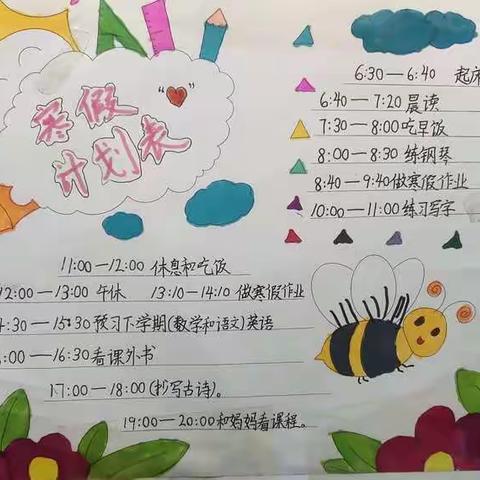 寒假
计划表
“ ”
6:30—6:40 起床
6:40—7:20晨读
7:30—8:00吃早饭
8:00—8:30 练钢琴
8:40—9:40做寒假作业
10:00—11:00练习写字
11:00—12:00 休息和吃饭
12:00—13:00 午休 13:10—14:10 做寒假作业
4:30—15:30预习下学期(数学和语文)英语
:00—16:30看课外书
17:00—18:00(抄写古诗)。
19:00—20:00和妈妈看课程。